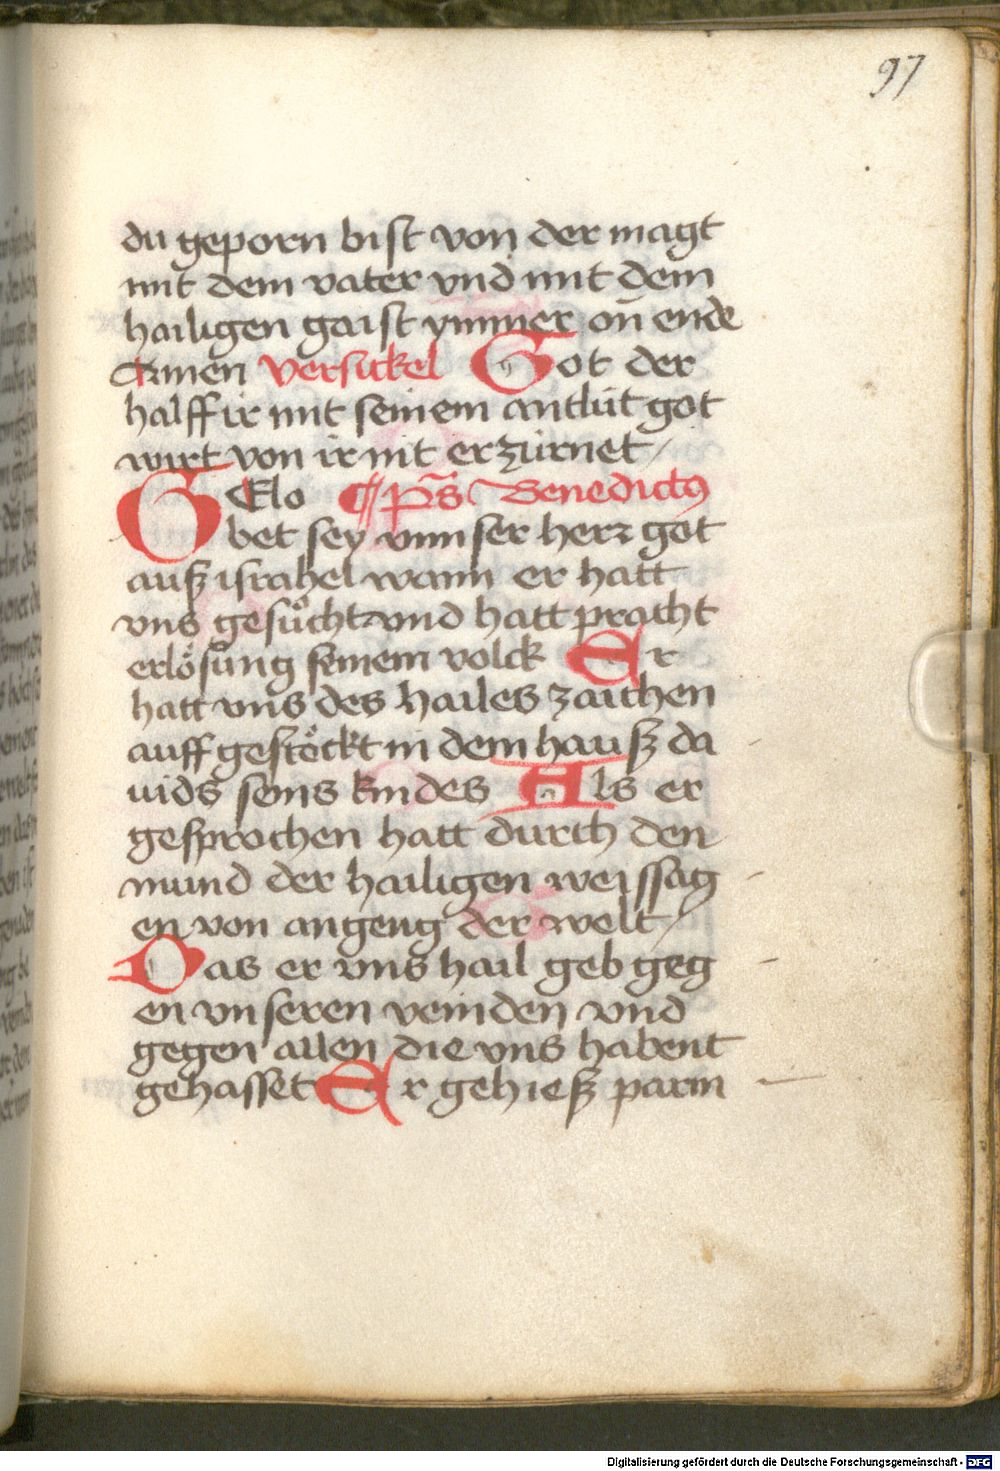 97
du geporn bist von der magt
mit dem vater vnd mit dem
hailigen gaist ymmer on̄ ende
Amen Versickel Got der
halff ir mit seinem antlüt got
wirt von ir nit erzürnet /
Gelo ¶ Ps̄ Benedictus
bet sey vnnser herr got
auß israhel wann er hatt
vns gesůcht vnd hatt pracht
erlösung seinem volck Er
hatt vns des hailes zaichen
auff gestöckt in dem hauß da
uids seins kindes Als er
gesprochen hatt durch den
mund der hailigen weissag
en von angeng der welt /
Das er vns hail geb geg
en vnseren veinden vnd
gegen allen die vns habent
gehasset Er gehieß parm
Digitalisierung gefördert durch die Deutsche Forschungsgemeinschaft - DFG